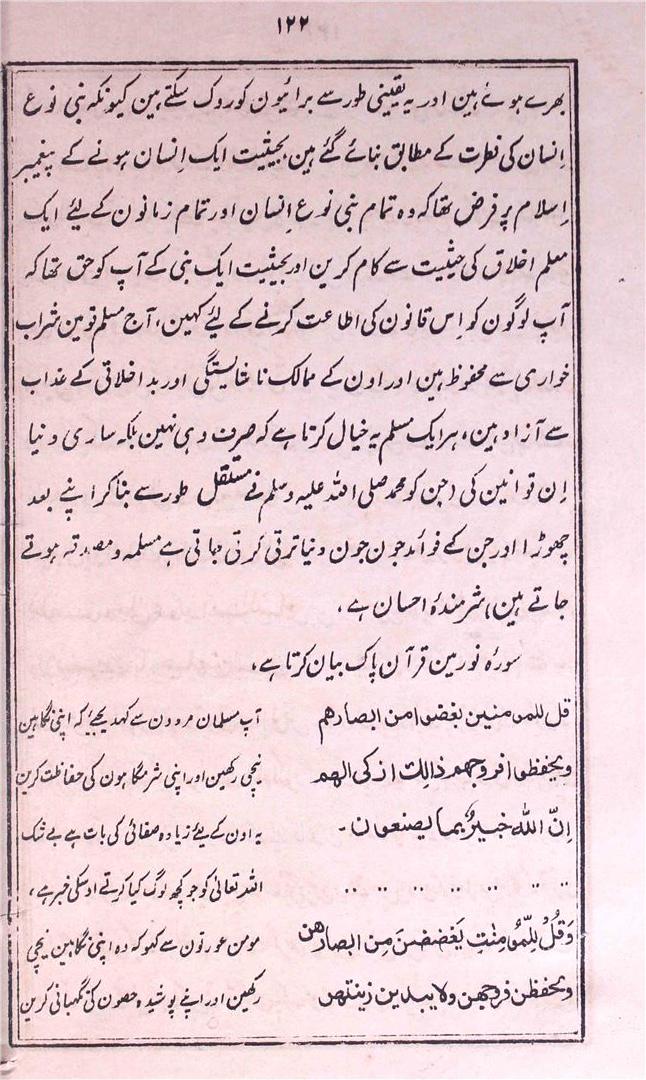 ۱۲۲
بھرے ہوئے ہین اور یہ یقینی طور سے برائیون کو روک سکتے ہین کیونکہ بنی نوع
اِنسان کی فطرت کے مطابق بنائے گئے ہین بحیثیت ایک اِنسان ہونے کے پیغمبر
اِسلام پر فرض تھا کہ وہ تمام بنی نوع اِنسان اور تمام زمانون کے لیئے ایک
معلم اخلاق کی حیثیت سے کام کرین اور بحیثیت ایک بنی کے آپ کو حق تھا کہ
آپ لوگون کو اِس قانون کی اطاعت کرنے کے لیئے کہین، آج مسلم قومین شراب
خواری سے محفوظ ہین اور اون کے ممالک ناشایستگی اور بد اخلاقی کے عذاب
سے آزاد ہین، ہر ایک مسلم یہ خیال کرتا ہے کہ صرف وہی نہین بلکہ ساری دنیا
اِن قوانین کی (جن کو محمد صلی اللہ علیہ وسلم نے مستقل طور سے بنا کر اپنے بعد
چھوڑا اور جن کے فوائد جون جون دنیا ترقی کرتی جاتی ہے مسلمہ و مصدقہ ہوتے
جاتے ہین) شرمندۂ احسان ہے،
سورۂ نور مین قرآن پاک بیان کرتا ہے،
قل للمومنین یغضوا من ابصارهم
آپ مسلمان مردون سے کہدیجئے کہ اپنی نگاہین
ویحفظوا فروجهم ذالك ازکی الهم
نیچی رکھین اور اپنی شرمگاہون کی حفاظت کرین
اِنّ اللہ خبیرٌ بما یصنعون۔
یہ اون کے لیئے زیادہ صفائی کی بات ہے بے شک
.. .. .. .. .. .. ..
اللہ تعالیٰ کو جو کچھ لوگ کیا کرتے اوسکی خبر ہے،
وَقُلْ لِلّمُؤمِنٰتِ یَغضضنَ مِن ابصارهن
مومن عورتون سے کہو کہ وہ اپنی نگاہین نیچی
ویحفظن فروجهن ولا یبدین زینتهن
رکھین اور اپنے پوشیدہ حصون کی نگہبانی کرین